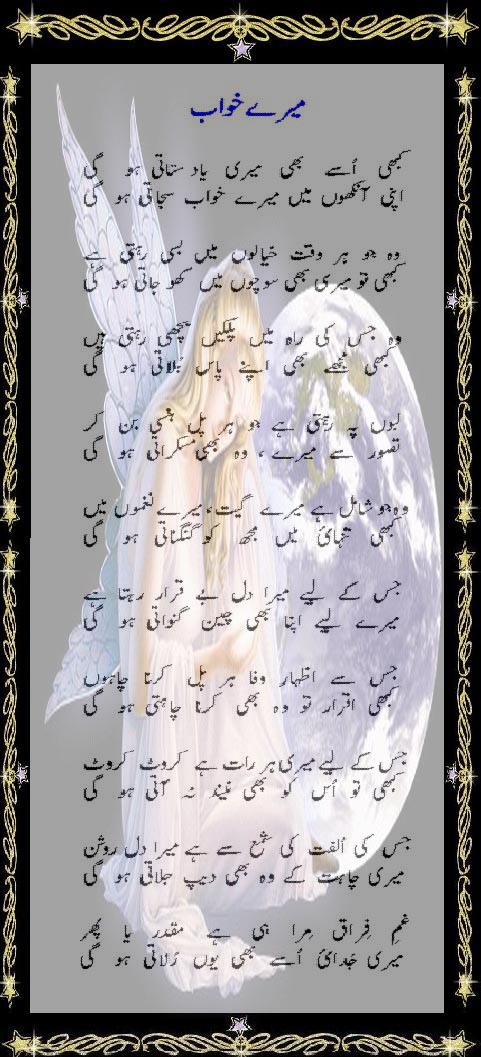 میرے خواب
کبھی اُسے بھی میری یاد ستاتی ہو گی
اپنی آنکھوں میں میرے خواب سجاتی ہو گی
وہ جو ہر وقت خیالوں میں بسی رہتی ہے
کبھی تو میری بھی سوچوں میں کھو جاتی ہو گی
وہ جس کی راہ میں پلکیں بچھی رہتی ہیں
کبھی مجھے بھی اپنے پاس بُلاتی ہو گی
لبوں پہ رہتی ہے جو ہر پل ہنسی بن کر
تصور سے میرے، وہ بھی مسکراتی ہو گی
وہ جو شامل ہے میرے گیت، میرے نغموں میں
کبھی تنہائ میں مجھ کو گنگناتی ہو گی
جس کے لیے میرا دل بے قرار رہتا ہے
میرے لیے اپنا بھی چین گنواتی ہو گی
جس سے اظہارِ وفا ہر پل کرنا چاہوں
کبھی اقرار تو وہ بھی کرنا چاہتی ہو گی
جس کے لیے میری ہر رات ہے کروٹ کروٹ
کبھی تو اُس کو بھی نیند نہ آتی ہو گی
جس کی اُلفت کی شمع سے ہے میرا دل روشن
میری چاہت کے وہ بھی دیپ جلاتی ہو گی
غمِ فراق مِرا ہی ہے مقدر یا پھر
میری جدائ اُسے بھی یوں رُلاتی ہو گی